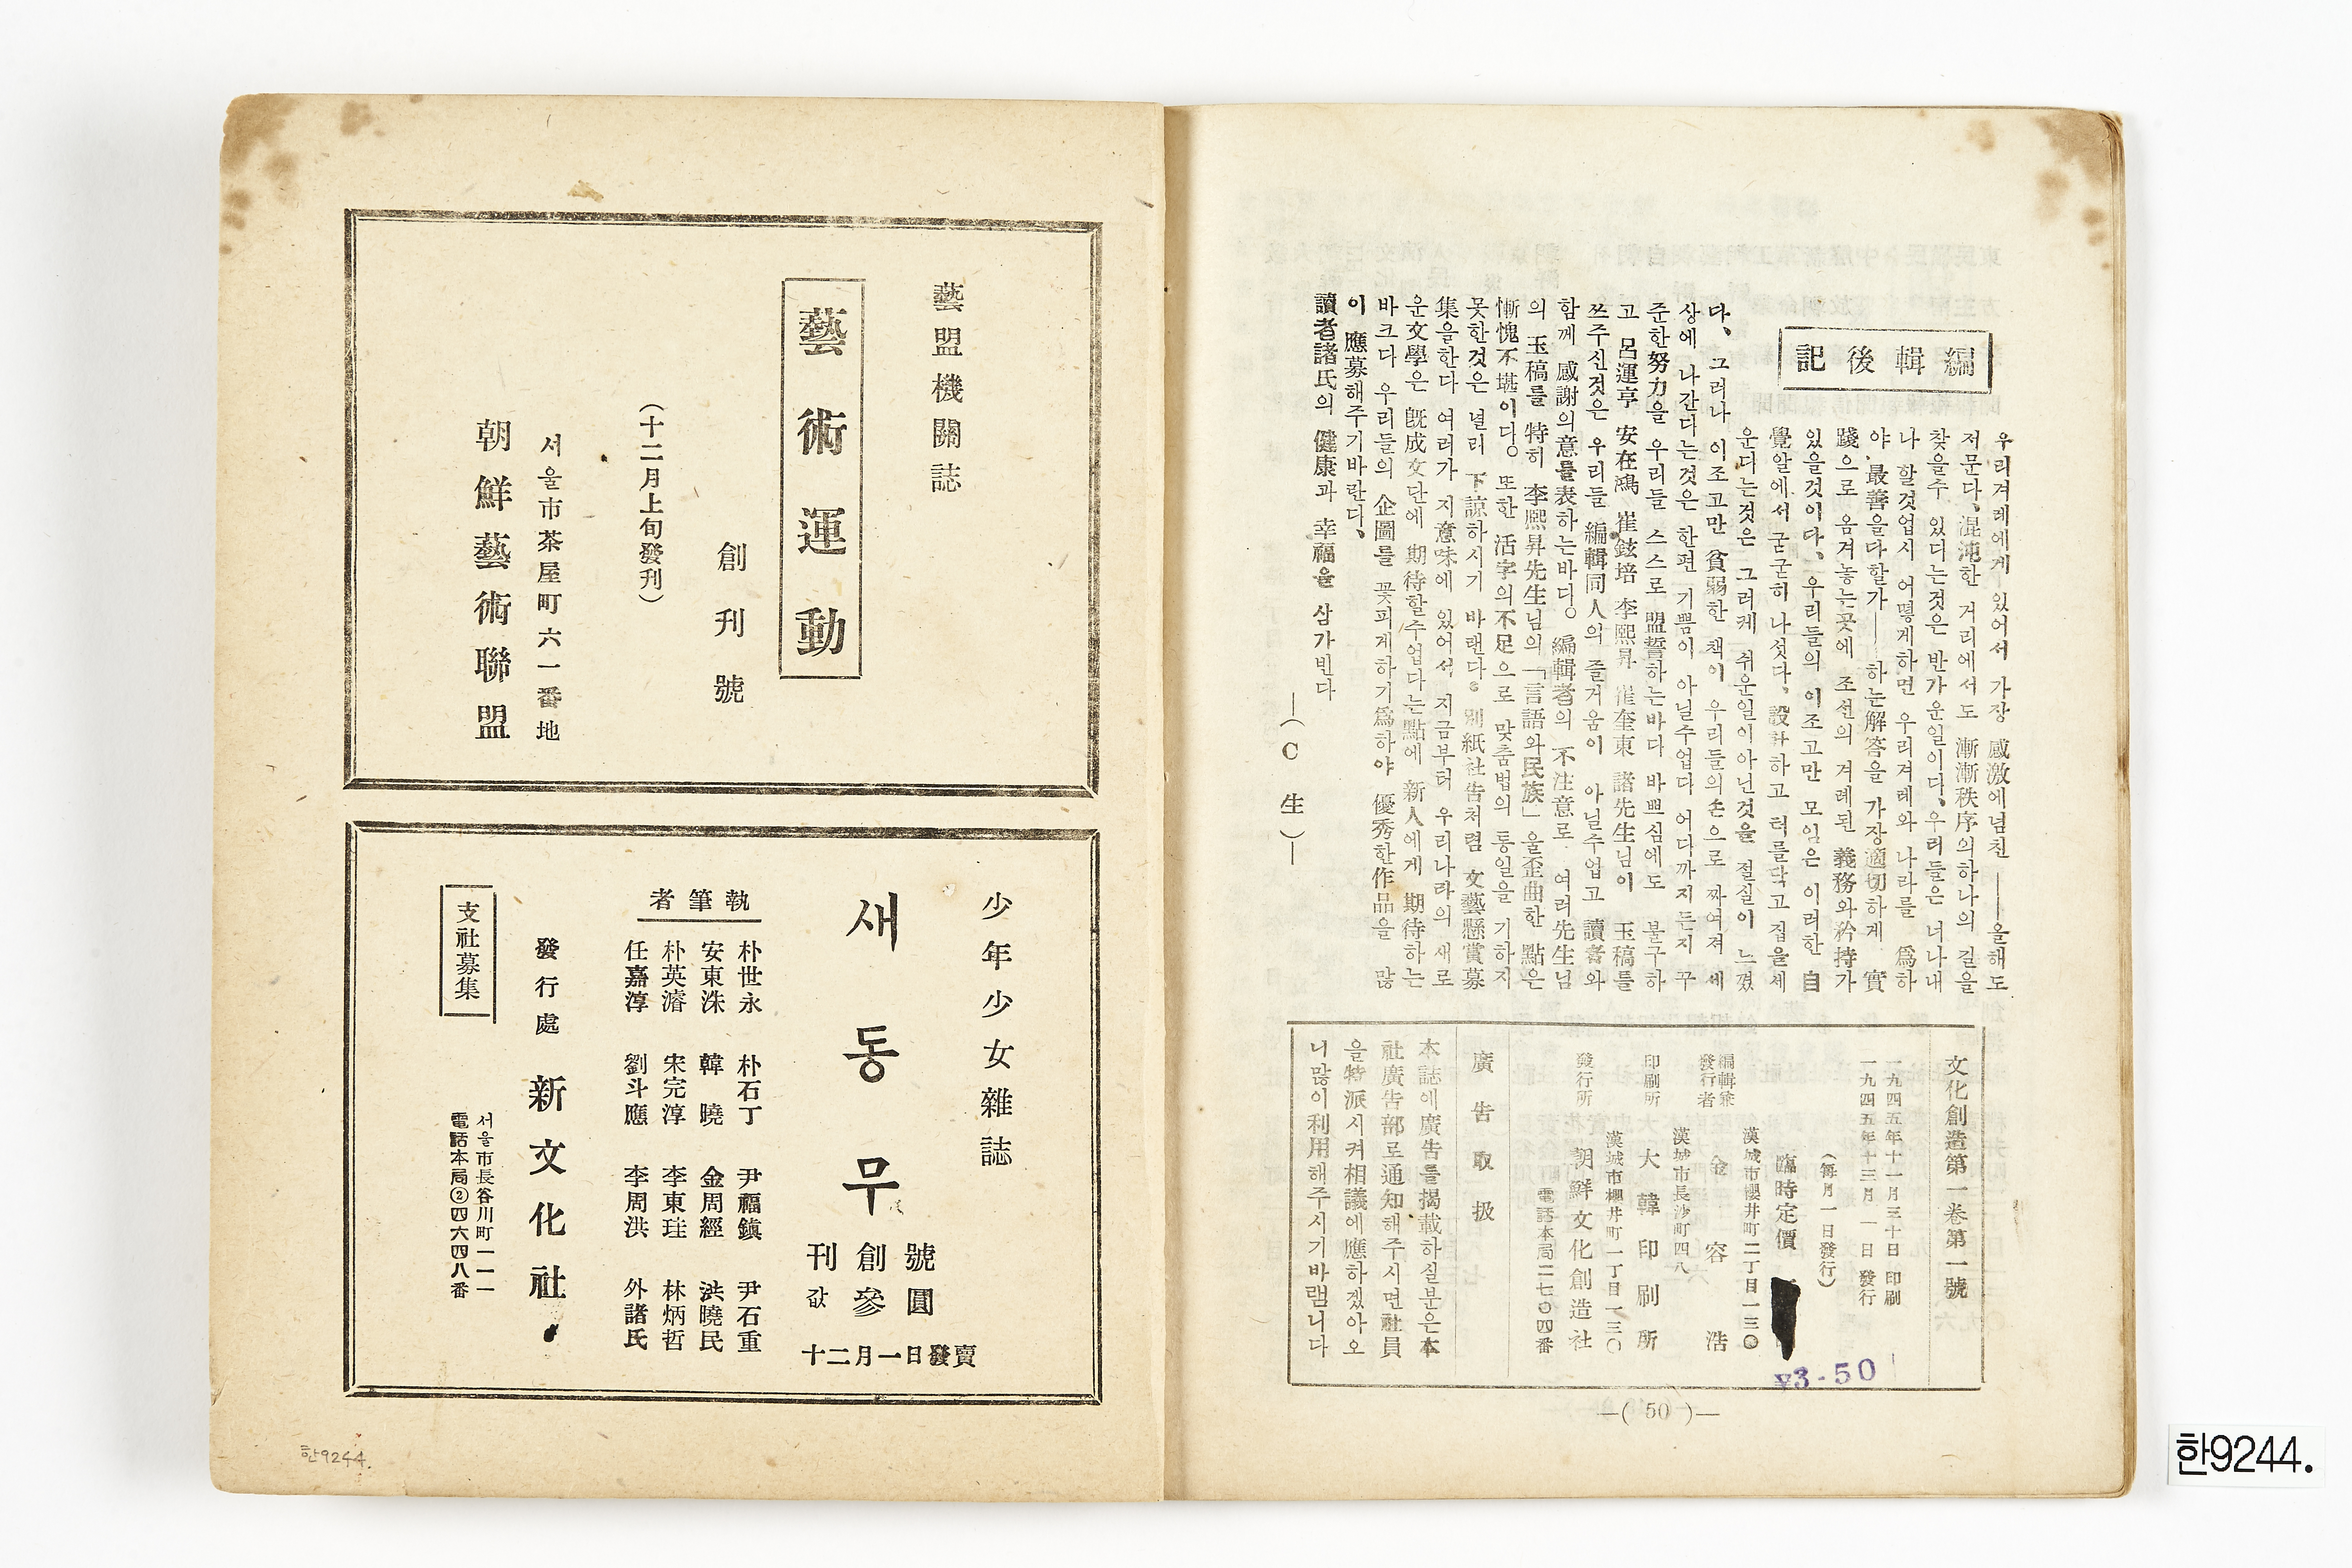 編輯後記
우리겨레에게 있어서 가장 感激에넘친 ——올해도
저문다、混沌한 거리에서도 漸漸秩序의하나의 길을
찾을수 있다는것은 반가운일이다、우리들은 너나내
나 할것업시 어떻게하면 우리겨레와 나라를 爲하
야 最善을다할가——하는解答을 가장適切하게 實
踐으로 옴겨놓는곳에 조선의 겨레된 義務와矜持가
있을것이다、우리들의 이조고만 모임은 이러한 自
覺알에서 굳군히 나섯다、設計하고 터를닥고집을세
운다는것은 그러케 쉬운일이아닌것을 절실이 느꼈
다、그러나 이조고만 貧弱한 책이 우리들의손으로 짜여져 세
상에 나간다는것은 한편 기쁨이 아닐수업다 어다까지든지 꾸
준한努力을 우리들 스스로 盟誓하는바다 바쁘심에도 불구하
고 呂運亨 安在鴻 崔鉉培 李熙昇 崔奎東 諸先生님이 玉稿를
쓰주신것은 우리들 編輯同人의 즐거움이 아닐수업고 讀者와
함께 感謝의意를表하는바다。編輯者의 不注意로 여러先生님
의 玉稿를 特히 李熙昇先生님의「言語와民族」을歪曲한 點은
慚愧不堪이다。또한 活字의不足으로 맞춤법의 통일을 기하지
못한것은 널리 下諒하시기 바랜다。別紙社告처렴 文藝懸賞募
集을한다 여러가 지意味에 있어서 지금부터 우리나라의 새로
운文學은 旣成文단에 期待할수업다는點에 新人에게 期待하는
바크다 우리들의 企圖를 꽃피게하기爲하야 優秀한作品을 많
이 應募해주기바란다、
讀者諸氏의 健康과 幸福을 삼가빈다
—(C 生)—
文化創造第一卷第一號
一九四五年十一月三十日 印刷
一九四五年十三月 一 日 發行
(每月一日發行)
臨時定價
₩3-50
漢城市櫻井町二丁目一三〇
編輯兼
發行者 金容浩
漢城市長沙町四八
印刷所 大韓印刷所
漢城市櫻井町一丁目一三〇
發行所 朝鮮文化創造社
電話本局二七〇四番
廣告取扱
本誌에廣告를揭載하실분은本
社廣告部로通知해주시면社員
을特派시켜相議에應하겠아오
니많이利用해주시기바램니다
—( 50 )—
藝盟機關誌
藝術運動
創刊號
(十二月上旬發刊)
서울市茶屋町六一番地
朝鮮藝術聯盟
少年少女雜誌
새동무
刊創號
값參圓
十二月一日發賣
者筆執
朴世永 朴石丁 尹福鎭 尹石重
安東洙 韓 曉 金周經 洪曉民
朴英濬 宋完淳 李東珪 林炳哲
任嘉淳 劉斗應 李周洪 外諸氏
發行處 新文化社
서울市長谷川町一一一
電話本局②四六四八番
支社募集
한9244.
한9244.